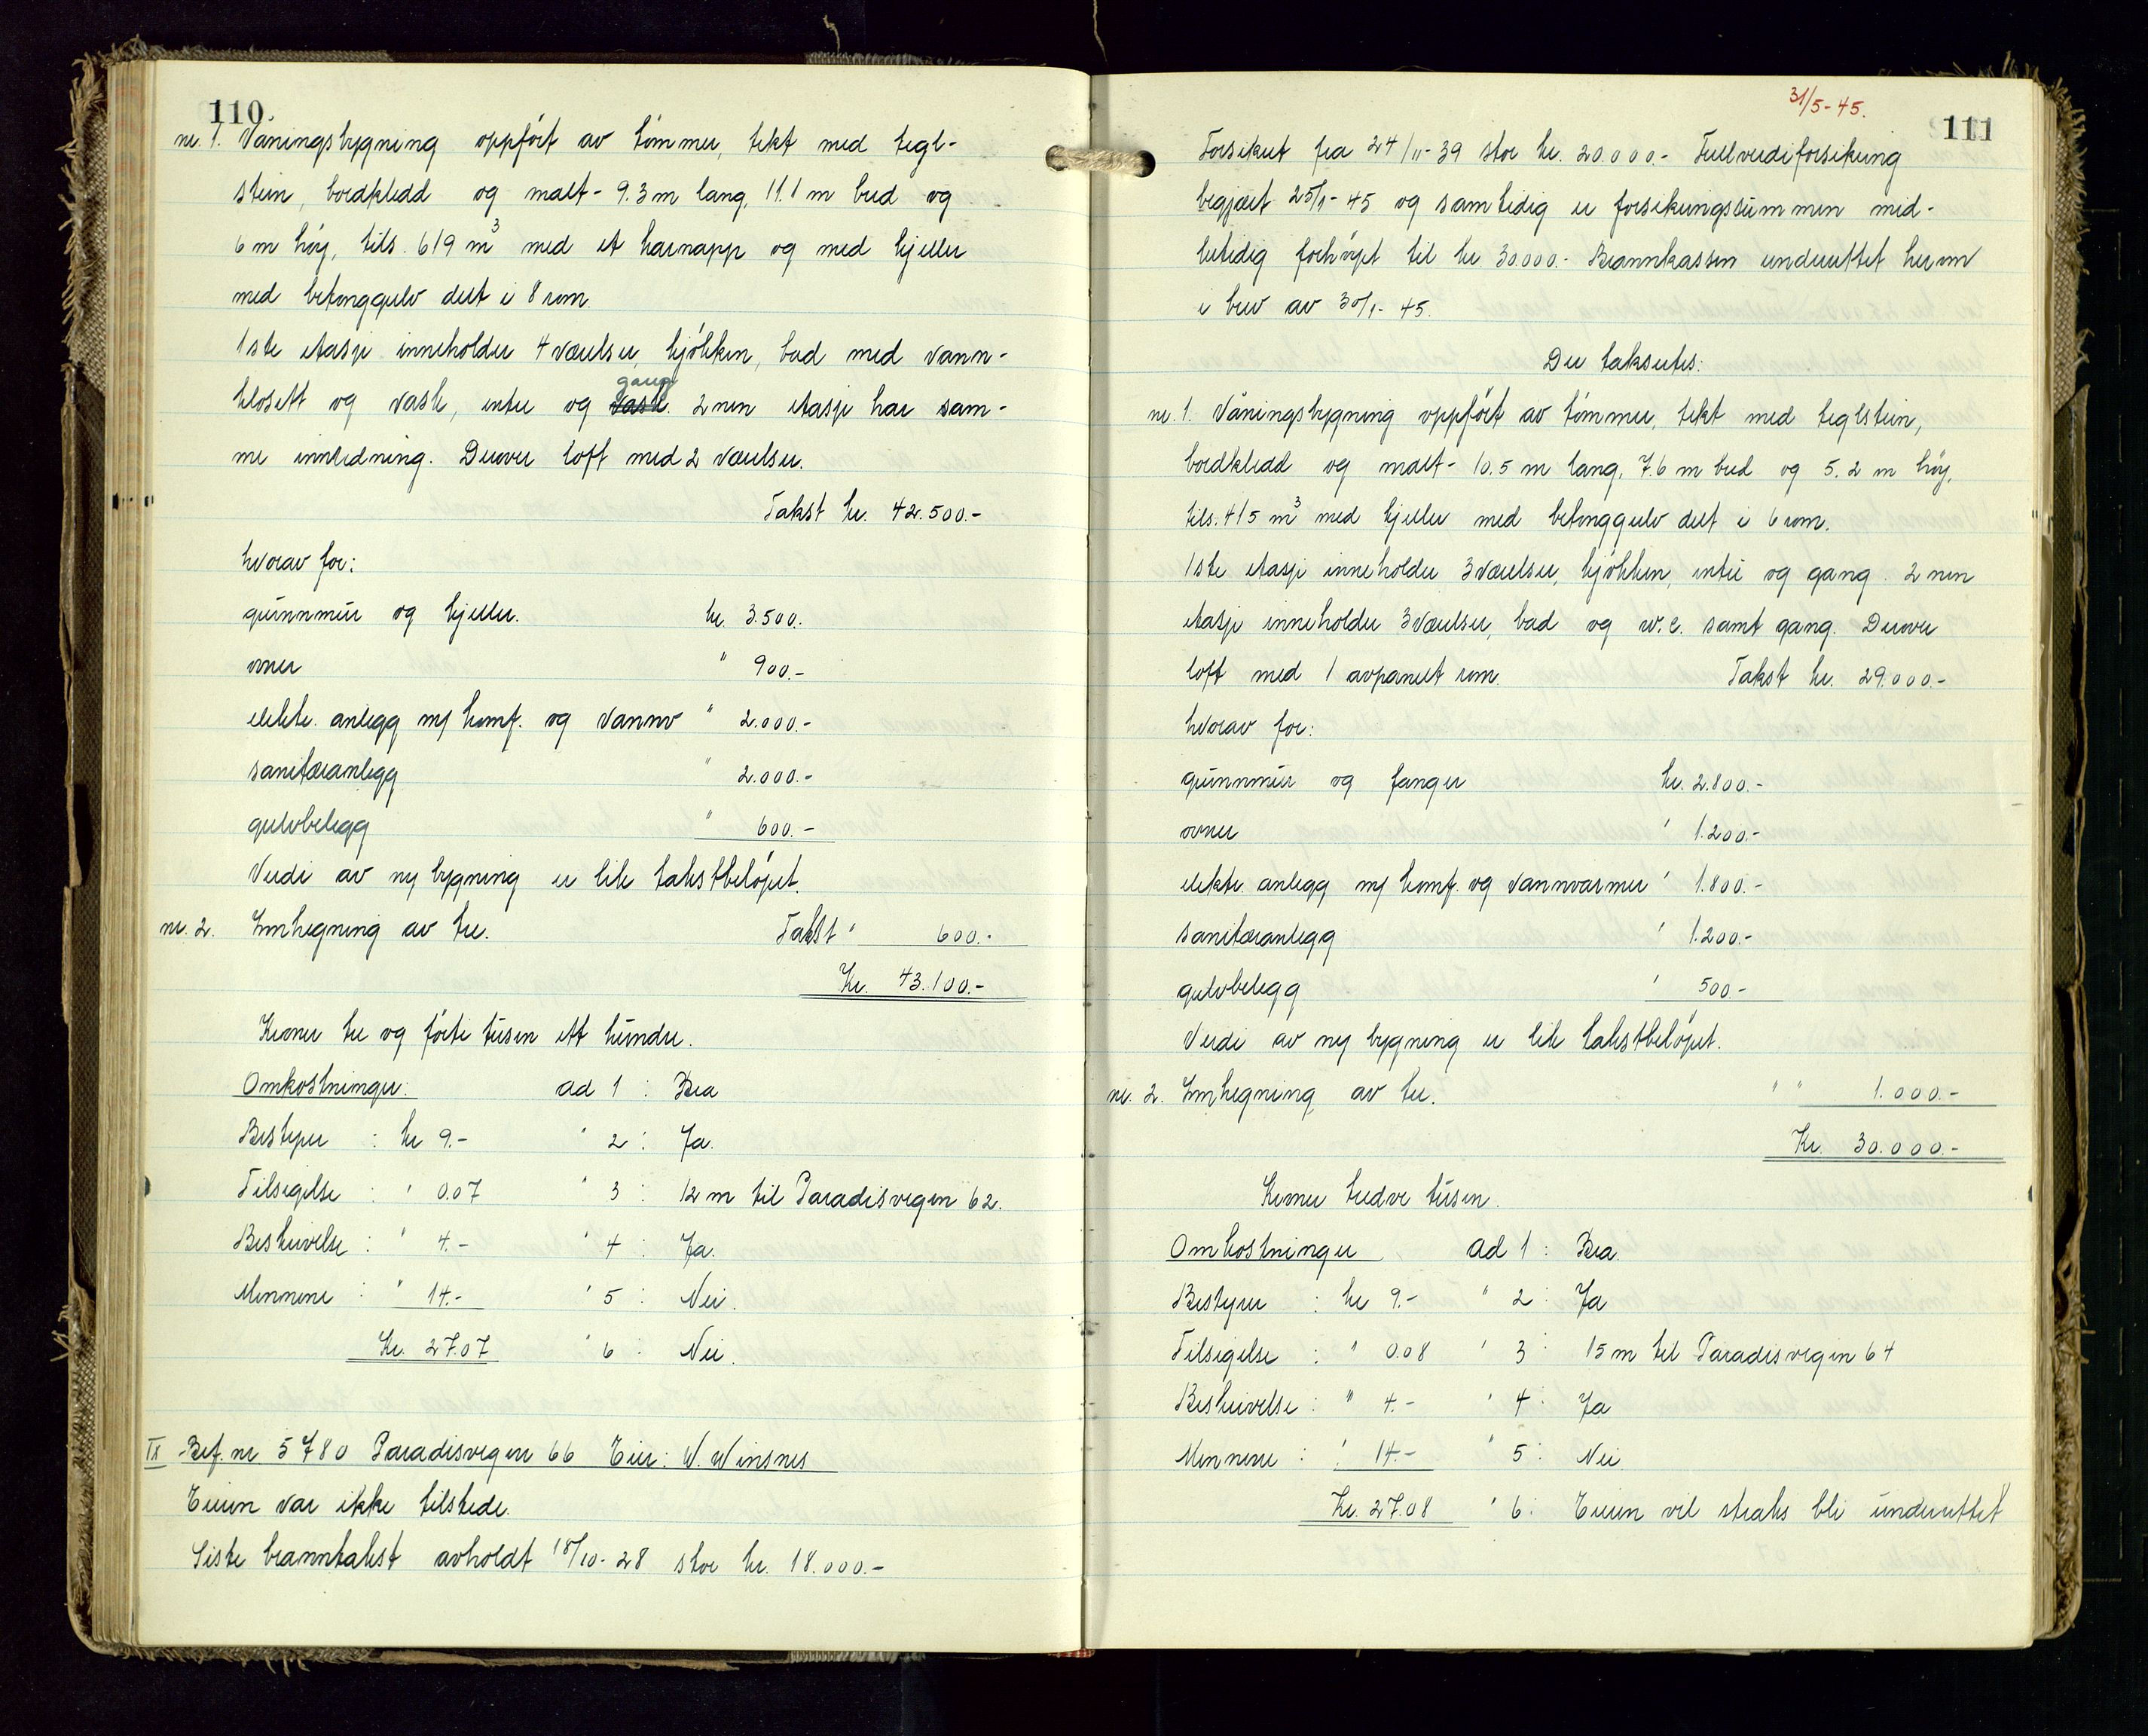 110
nr. 1. Våningsbygning oppført av tømmer, tekt med tegl-
stein, bordkledd og malt - 9.3 m lang, 11.1 m bred og
6 m høy, tils. 619 m³ med et karnapp og med kjeller
med betonggulv delt i 8 rom.
1ste etasje inneholder 4 værelser, kjøkken, bad med vann-
klosett og vask, entre og vask gang. 2nen etasje har sam-
me innredning. Derover loft med 2 værelser.
Takst kr. 42.500.-
hvorav for:
grunnmur og kjeller. kr. 3.500.
ovner " 900.-
elektr. anlegg m/ komf. og vannv " 2.000.-
sanitæranlegg " 2.000.-
gulvbelegg " 600.-
Verdi av ny bygning er lik takstbeløpet.
nr. 2. Innhegning av tre. Takst " 600.-
Kr. 43.100.-
Kroner tre og førti tusen ett hundre.
Omkostninger: ad 1 : Bra
Bestyrer : kr 9.- " 2 : Ja.
Tilsigelse : " 0.07 " 3 : 12 m til Paradisvegen 62.
Beskrivelse : " 4.- " 4 : Ja.
Mennene : " 14.- " 5 : Nei.
Kr. 27.07 " 6 : Nei.
IX Bef. nr 5780 Paradisvegen 66 Eier: W. Winsnes
Eieren var ikke tilstede.
Siste branntakst avholdt 18/10-28 stor kr. 18.000.-
31/5-45.
111
Forsikret fra 24/11-39 stor kr. 20.000.- Fullverdiforsikring
begjært 25/1-45 og samtidig er forsikringssummen mid-
lertidig forhøyet til kr 30.000.- Brannkassen underrettet herom
i brev av 30/1-45.
Der takseres:
nr. 1. Våningsbygning oppført av tømmer, tekt med teglstein,
bordkledd og malt - 10.5 m lang, 7.6 m bred og 5.2 m høy,
tils. 415 m³ med kjeller med betonggulv delt i 6 rom.
1ste etasje inneholder 3 værelser, kjøkken, entre og gang. 2nen
etasje inneholder 3 værelser, bad og w.c. samt gang. Derover
loft med 1 avpanelt rom. Takst kr. 29.000.-
hvorav for:
grunnmur og ganger kr. 2.800.-
ovner " 1.200.-
elektr. anlegg m/ komf. og vannvarmer " 1.800.-
sanitæranlegg " 1.200.-
gulvbelegg " 500.-
Verdi av ny bygning er lik takstbeløpet.
nr. 2. Innhegning av tre. " " 1.000.-
Kr. 30.000.-
Kroner tredve tusen.
Omkostninger ad 1 : Bra.
Bestyrer : kr 9.- " 2 : Ja
Tilsigelse : " 0.08 " 3 : 15 m til Paradisvegen 64
Beskrivelse : " 4.- " 4 : Ja
Mennene : " 14.- " 5 : Nei
Kr. 27.08 " 6 : Eieren vil straks bli underrettet